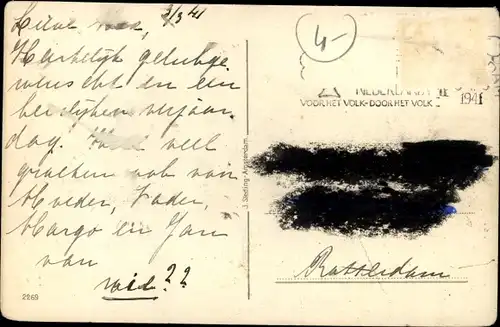 Lieve 2/3 41
Hartelijk geluk ge
wenscht en een
heerlijken verjaar
dag. veel
groeten ook van
Moeder, Vader,
Margo en Jan
van
wie??
2269
J. Sleding - Amsterdam
4-
NEDERLAND
VOOR HET VOLK - DOOR HET VOLK
1941
Rotterdam